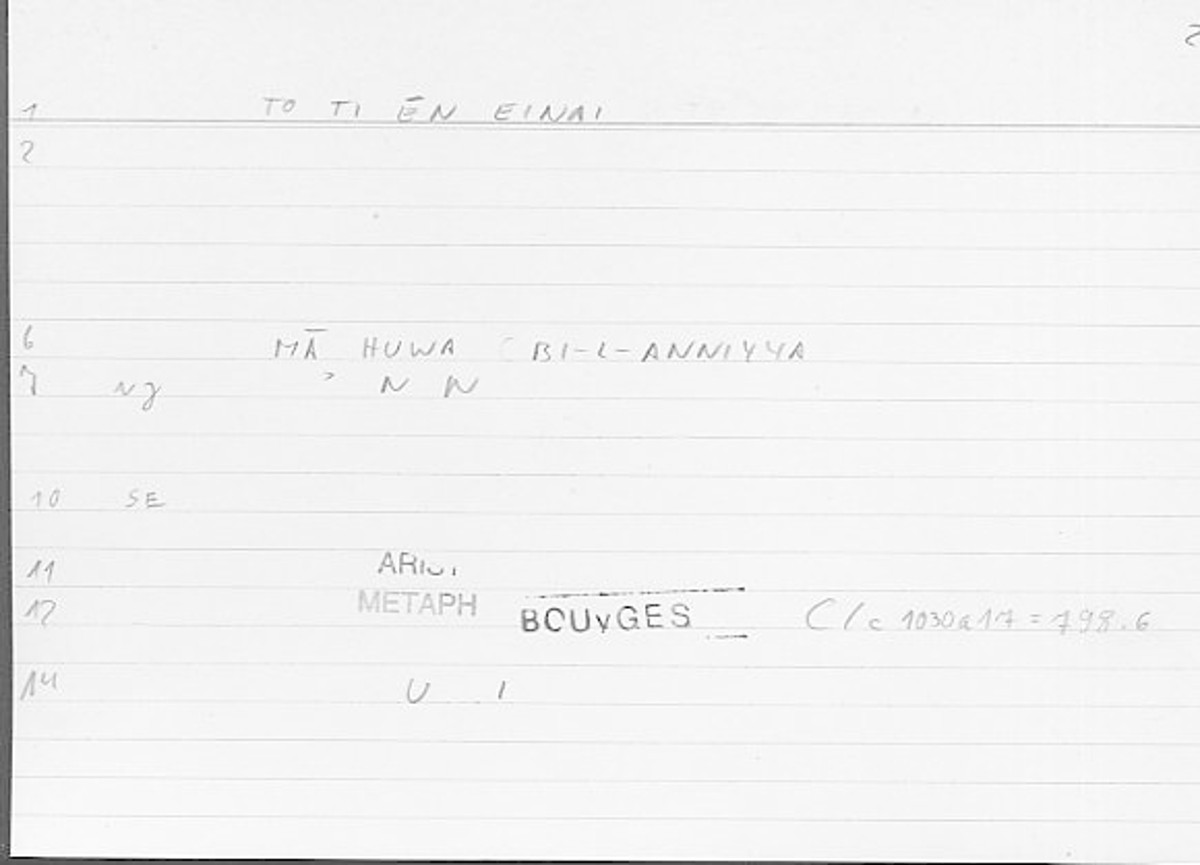 2
1 TO TI ĒN EINAI
2
6 MĀ HUWA BI-L-ANNIYYA
7 NJ > N N
10 SE
11 ARIS.
12 METAPH BOUYGES C/c 1030a17 = 798.6
14 U I